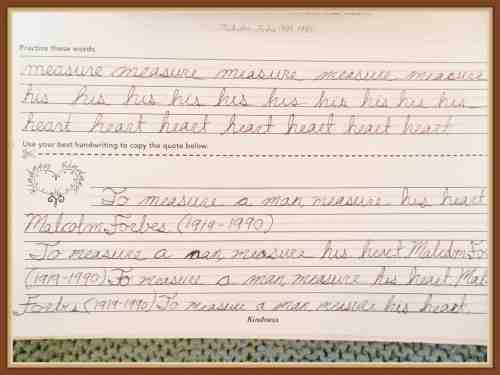 Malcolm Forbes (1919-1990)
Practice these words.
measure measure measure measure measure
his his his his his his his his his his
heart heart heart heart heart heart heart
Use your best handwriting to copy the quote below.
To measure a man, measure his heart
Malcolm Forbes (1919-1990)
To measure a man, measure his heart. Malcolm Fo
(1919-1990) To measure a man, measure his heart. Mal
Forbes (1919-1990) To measure a man, measure his heart.
Kindness